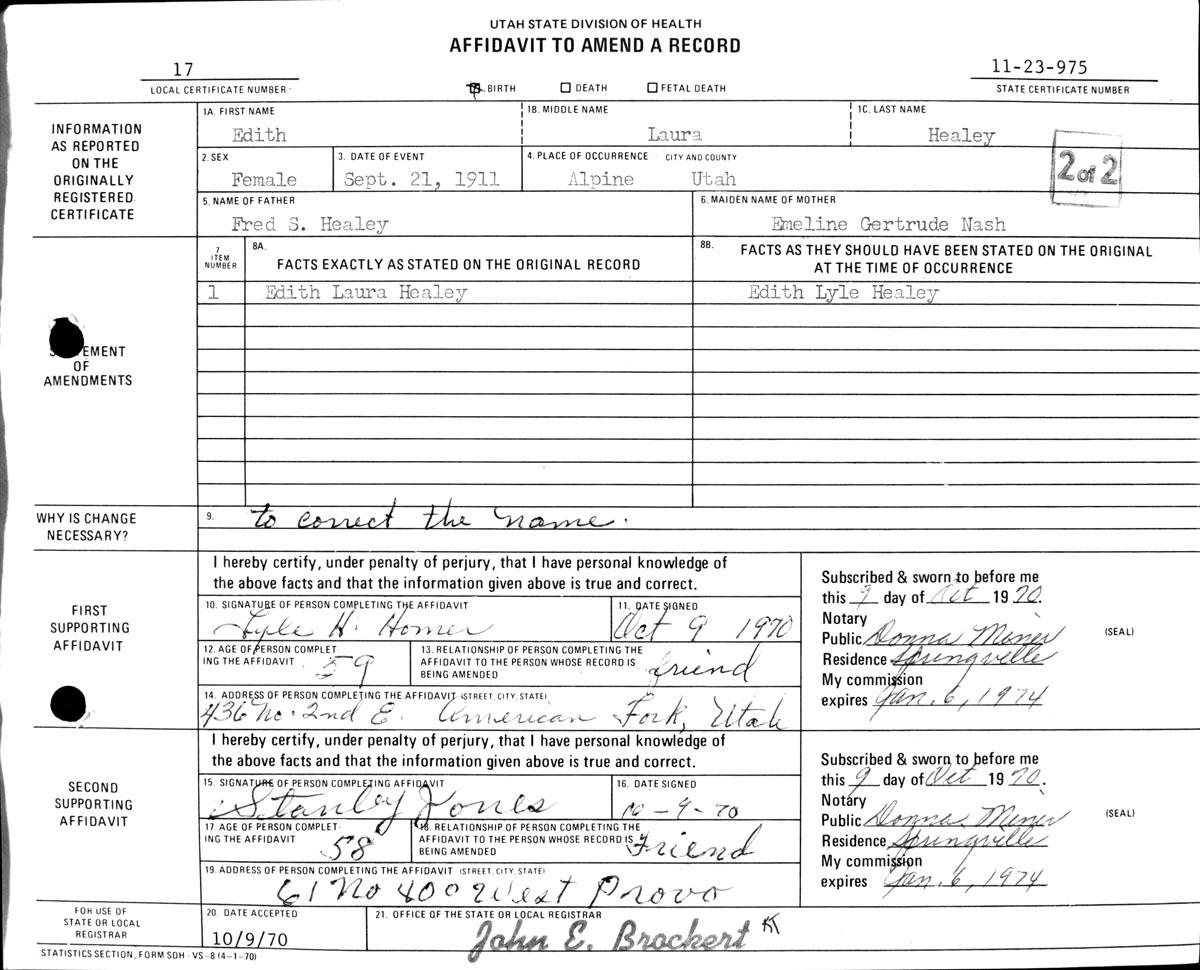 UTAH STATE DIVISION OF HEALTH
AFFIDAVIT TO AMEND A RECORD
17
LOCAL CERTIFICATE NUMBER
BIRTH DEATH FETAL DEATH
11-23-975
STATE CERTIFICATE NUMBER
INFORMATION
AS REPORTED
ON THE
ORIGINALLY
REGISTERED
CERTIFICATE
1A. FIRST NAME 1B. MIDDLE NAME 1C. LAST NAME
Edith Laura Healey
2. SEX 3. DATE OF EVENT 4. PLACE OF OCCURRENCE CITY AND COUNTY
Female Sept. 21, 1911 Alpine Utah
2 of 2
5. NAME OF FATHER 6. MAIDEN NAME OF MOTHER
Fred S. Healey Emeline Gertrude Nash
7
ITEM
NUMBER
8A.
FACTS EXACTLY AS STATED ON THE ORIGINAL RECORD
8B. FACTS AS THEY SHOULD HAVE BEEN STATED ON THE ORIGINAL
AT THE TIME OF OCCURRENCE
1 Edith Laura Healey Edith Lyle Healey
EMENT
OF
AMENDMENTS
WHY IS CHANGE
NECESSARY?
9. to correct the name.
FIRST
SUPPORTING
AFFIDAVIT
I hereby certify, under penalty of perjury, that I have personal knowledge of
the above facts and that the information given above is true and correct.
10. SIGNATURE OF PERSON COMPLETING THE AFFIDAVIT 11. DATE SIGNED
Lyle H. Homer Oct 9 1970
12. AGE OF PERSON COMPLET-
ING THE AFFIDAVIT 59
13. RELATIONSHIP OF PERSON COMPLETING THE
AFFIDAVIT TO THE PERSON WHOSE RECORD IS
BEING AMENDED friend
14. ADDRESS OF PERSON COMPLETING THE AFFIDAVIT (STREET, CITY, STATE)
436 No. 2nd E. American Fork, Utah
Subscribed & sworn to before me
this 9 day of Oct 1970.
Notary
Public Donna Miner
Residence Springville
My commission
expires Jan. 6, 1974
(SEAL)
SECOND
SUPPORTING
AFFIDAVIT
I hereby certify, under penalty of perjury, that I have personal knowledge of
the above facts and that the information given above is true and correct.
15. SIGNATURE OF PERSON COMPLETING AFFIDAVIT 16. DATE SIGNED
Stanley Jones 10-9-70
17. AGE OF PERSON COMPLET-
ING THE AFFIDAVIT 58
18. RELATIONSHIP OF PERSON COMPLETING THE
AFFIDAVIT TO THE PERSON WHOSE RECORD IS
BEING AMENDED Friend
19. ADDRESS OF PERSON COMPLETING THE AFFIDAVIT (STREET, CITY, STATE)
61 No 400 West Provo
Subscribed & sworn to before me
this 9 day of Oct 1970.
Notary
Public Donna Miner
Residence Springville
My commission
expires Jan. 6, 1974
(SEAL)
FOR USE OF
STATE OR LOCAL
REGISTRAR
20. DATE ACCEPTED 21. OFFICE OF THE STATE OR LOCAL REGISTRAR
10/9/70 John E. Brockert
STATISTICS SECTION, FORM SDH - VS - 8 (4-1-70)